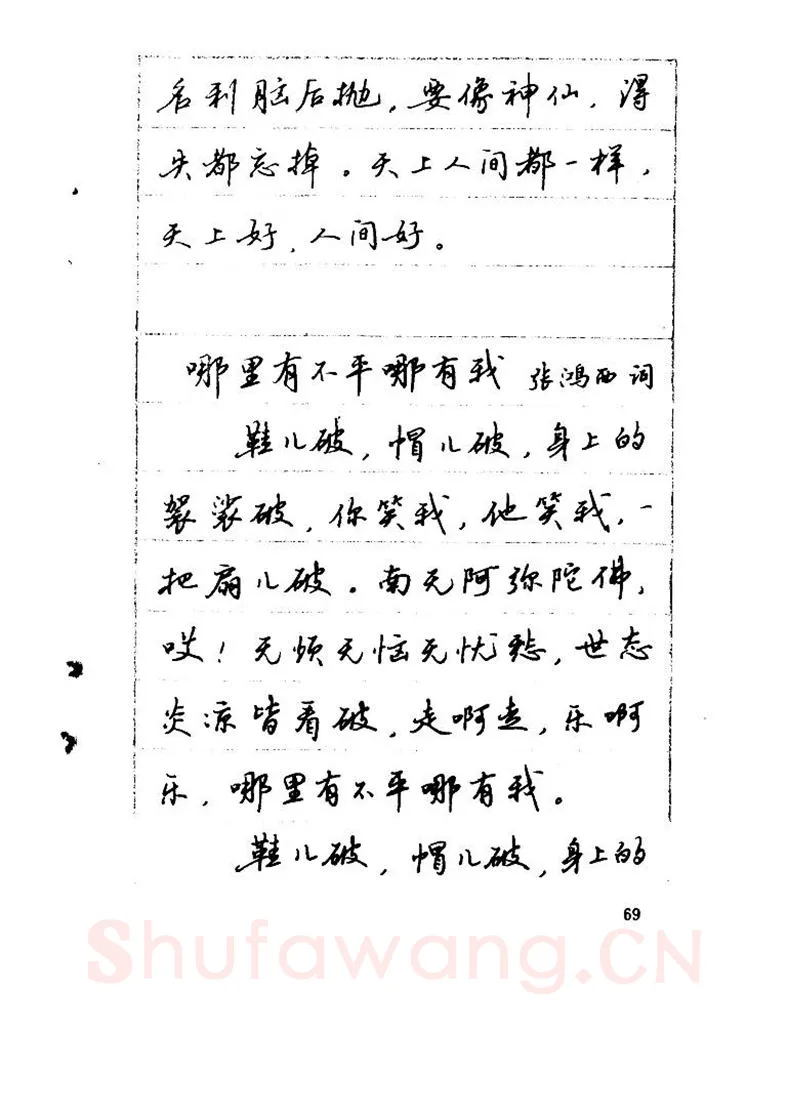 名利脑后抛，要像神仙，得
失都忘掉。天上人间都一样，
天上好，人间好。
哪里有不平哪有我 张鸿西词
鞋儿破，帽儿破，身上的
袈裟破，你笑我，他笑我，一
把扇儿破。南无阿弥陀佛，
哎！无烦无恼无忧愁，世态
炎凉皆看破，走啊走，乐啊
乐，哪里有不平哪有我。
鞋儿破，帽儿破，身上的
69
Shufawang.CN